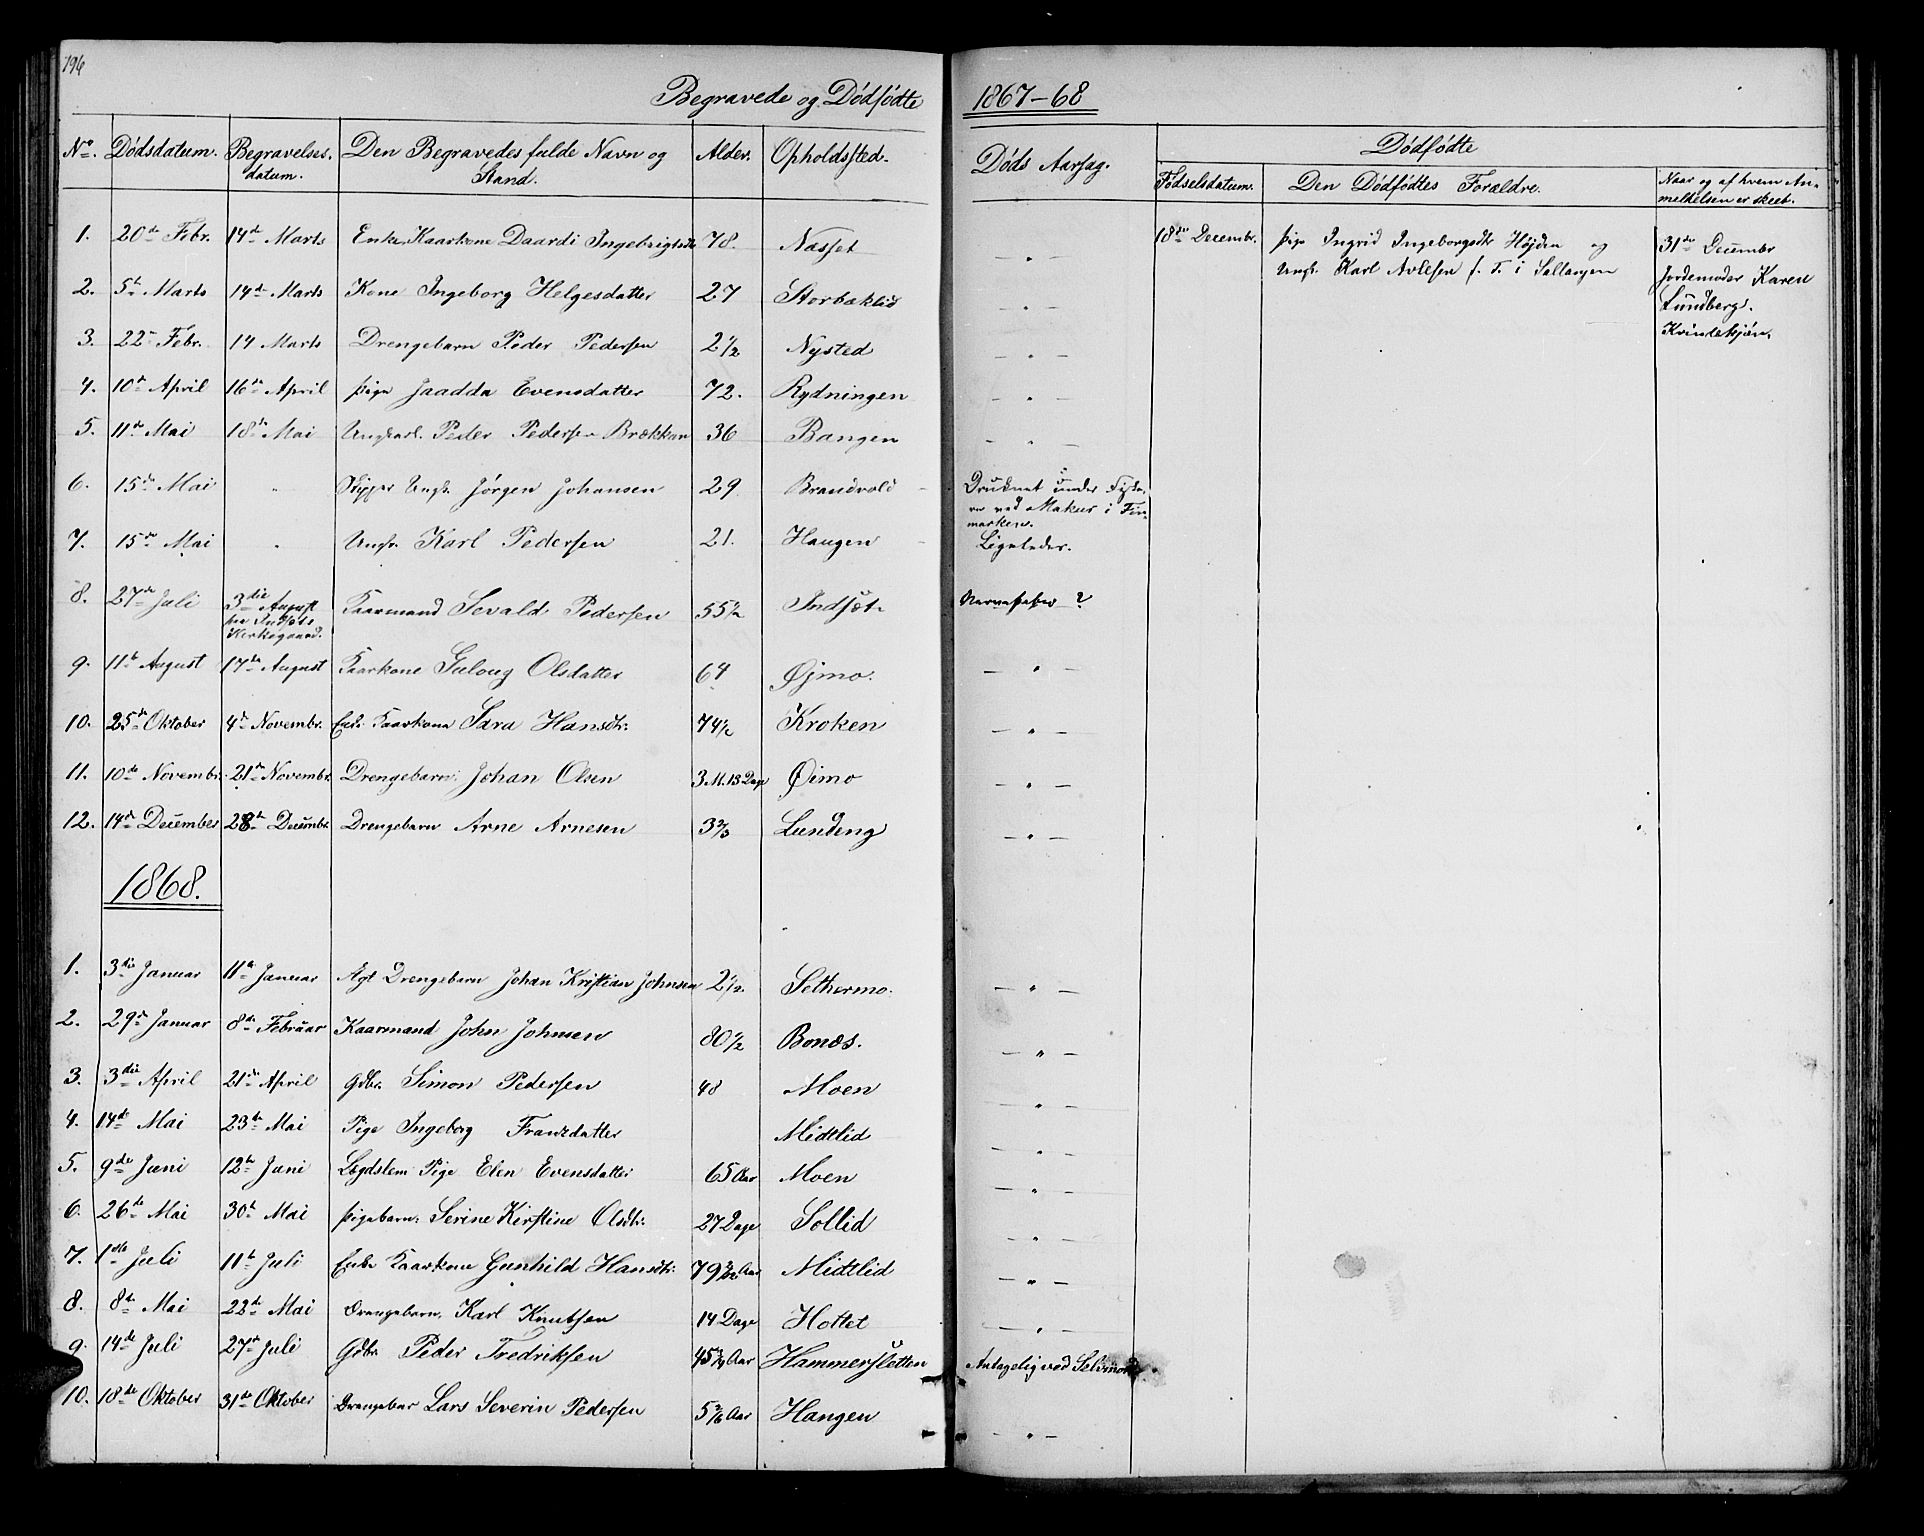 196
Begravede og Dødfødte 1867-68
No. Dødsdatum. Begravelses- Den Begravedes fulde Navn og Alder. Opholdssted. Døds Aarsag. Dødfødte
datum. Stand. Fødselsdatum. Den Dødfødtes Forældre. Naar og af hvem An-
meldelsen er skeet.
1. 20de Febr. 14de Marts Enke Kaarkone Daardi Ingebrigtsdtr 78. Nasset - " - 18de Decembr. Pige Ingrid Ingeborgsdtr Højden og 31te Decembr
Ungk. Karl Avlesen f. T. i Sallangen Jordemoder Karen
2. 5te Marts 14de Marts Kone Ingeborg Helgesdatter 27 Storbaklid - " - Lundberg.
3. 22de Febr. 14 Marts Drengebarn Peder Pedersen 2 1/2 Nysted - " -
4. 10de April 16de April Pige Jaadda Evensdatter 72. Rydningen - " -
5. 11te Mai 18de Mai Ungkarl. Peder Pedersen Brækkan 36 Bangen - " -
6. 15de Mai " Skipper Ungk. Jørgen Johansen 29 Brandvold Druknet under
ved Makur i Fin-
marken.
7. 15de Mai " Ungk. Karl Pedersen 21. Haugen Ligeledes.
8. 27de Juli 3die August Kaarmand Sevald Pedersen 55 1/2 Indset Nervefeber ?
paa Indsets
Kirkegaard.
9. 11te August 17de August Kaarkone Guloug Olsdatter 64 Øjmo. - " -
10. 25de Oktober 4de Novembr. Enke Kaarkone Sara Hansdtr. 74 1/2 Kroken - " -
11. 10de Novembr. 21de Novembr. Drengebarn Johan Olsen 3 M. 13 Dage Øimo - " -
12. 14de December 28de Decembr. Drengebarn Arne Arnesen 3 2/3 Lundeng - " -
1868.
1. 3die Januar 11te Januar Ægt Drengebarn Johan Kristian Johnsen 2 1/2. Sethermo. - " -
2. 29de Januar 8de Februar Kaarmand John Johnsen 80 1/2 Bonæs. - " -
3. 3die April 21de April Gdbr. Simon Pedersen 48 Moen - " -
4. 14de Mai 23de Mai Pige Ingeborg Franzdatter Midtlid - " -
5. 9de Juni 12te Juni Lægdslem Pige Elen Evensdatter 65 Aar Moen - " -
6. 26de Mai 30te Mai Pigebarn: Serine Kirstine Olsdtr. 27 Dage Sollid - " -
7. 1ste Juli 11te Juli Enke Kaarkone Gunhild Hansdtr. 79 Aar Midtlid - " -
8. 8de Mai 22de Mai Drengebarn. Karl Knutsen 14 Dage Hottet - " -
9. 14de Juli 27de Juli Gdbr. Peder Fredriksen 45 Aar Hammersletten Antagelig ved Selvmord.
10. 18de Oktober 31te Oktober Drengebar Lars Severin Pedersen 5 Aar Hangen - " -